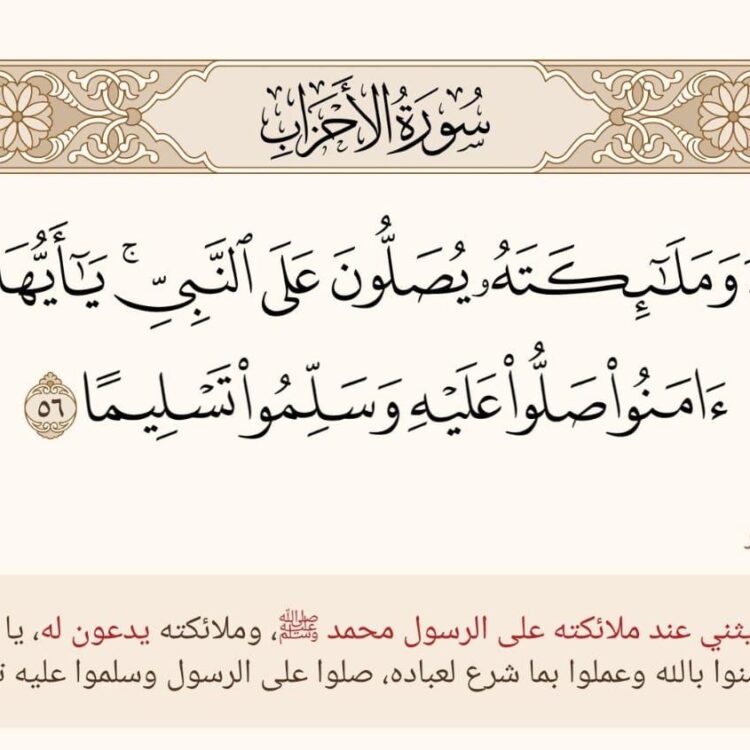 سُورَةُ الأَحْزَابِ
وَمَلَٰٓئِكَتَهُۥ يُصَلُّونَ عَلَى ٱلنَّبِيِّ ۚ يَٰٓأَيُّهَا
ءَامَنُوا۟ صَلُّوا۟ عَلَيْهِ وَسَلِّمُوا۟ تَسْلِيمًا ٥٦
يثني عند ملائكته على الرسول محمد ﷺ، وملائكته يدعون له، يا
بالله وعملوا بما شرع لعباده، صلوا على الرسول وسلموا عليه